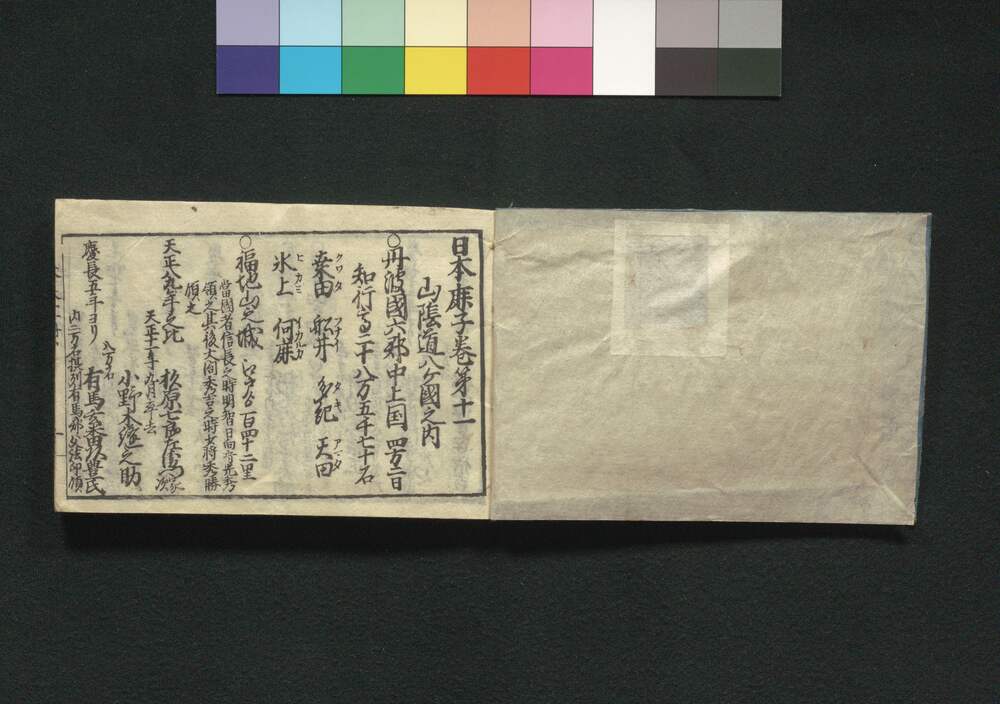 日本鹿子巻第十一
山陰道八ケ國之内
○丹波國六郡中上国 四方二日
知行高二十八万五千七十石
桑田 クワタ 船井 フナイ 多紀 タキ 天田 アマタ
氷上 ヒカミ 何鹿 イカルカ
○福地山之城 江戸ヨリ百四十二里
當國者信長之時明智日向守光秀
領之其後大閤秀吉之時少将秀勝
領之
天正八九年之比 杉原七郎左衛門家次
天正十二年九月九日卒去
小野木縫之助
慶長五年ヨリ 八万石 有馬玄蕃頭豊氏
内二万石摂刕有馬郡父法印領